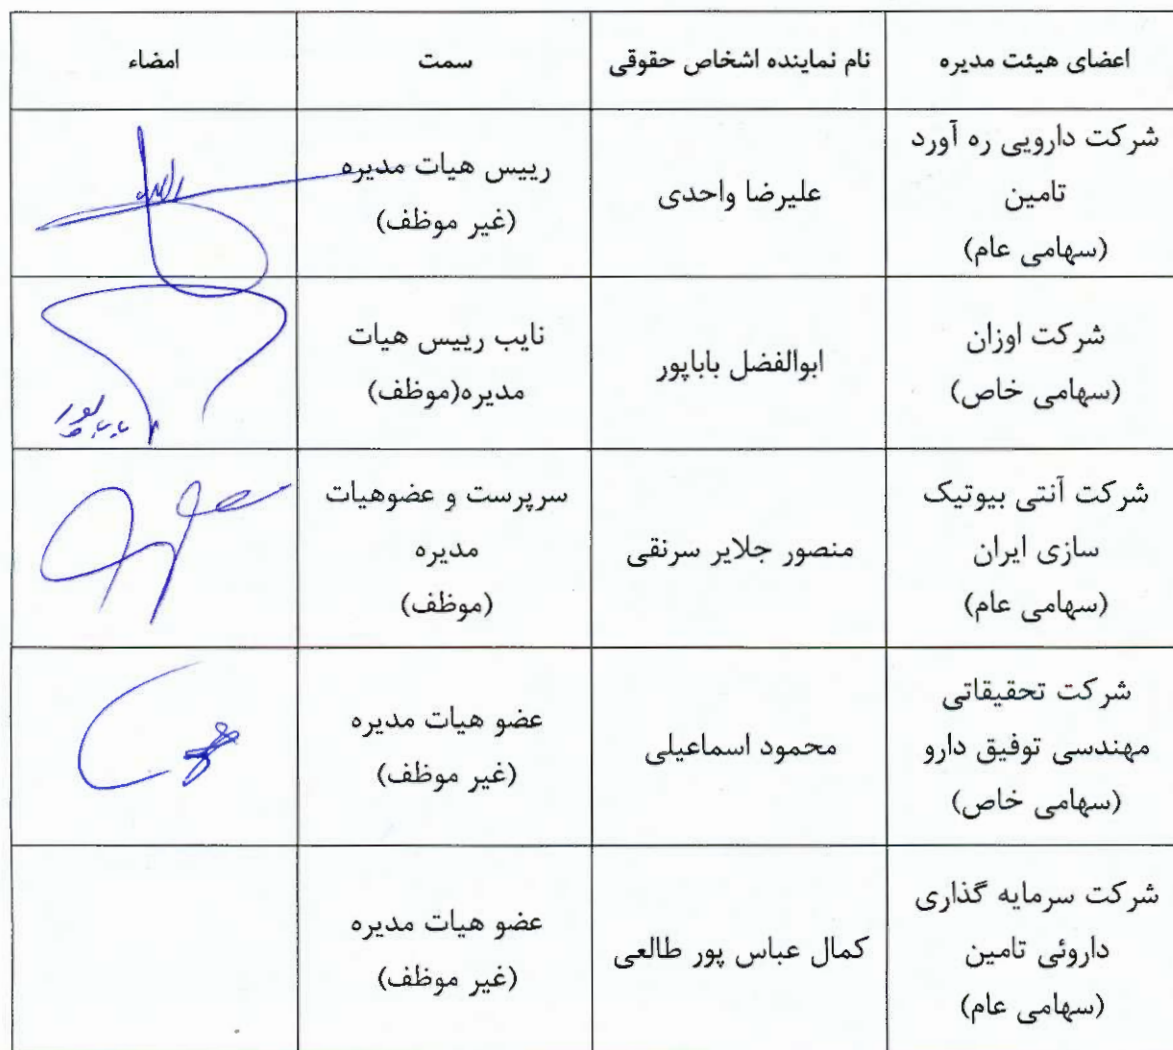 اعضای هیئت مدیره
نام نماینده اشخاص حقوقی
سمت
امضاء
شرکت دارویی ره آورد
تامین
(سهامی عام)
علیرضا واحدی
رییس هیات مدیره
(غیر موظف)
شرکت اوزان
(سهامی خاص)
ابوالفضل باباپور
نایب رییس هیات
مدیره(موظف)
باباپور
شرکت آنتی بیوتیک
سازی ایران
(سهامی عام)
منصور جلایر سرنقی
سرپرست و عضوهیات
مدیره
(موظف)
شرکت تحقیقاتی
مهندسی توفیق دارو
(سهامی خاص)
محمود اسماعیلی
عضو هیات مدیره
(غیر موظف)
شرکت سرمایه گذاری
داروئی تامین
(سهامی عام)
کمال عباس پور طالعی
عضو هیات مدیره
(غیر موظف)